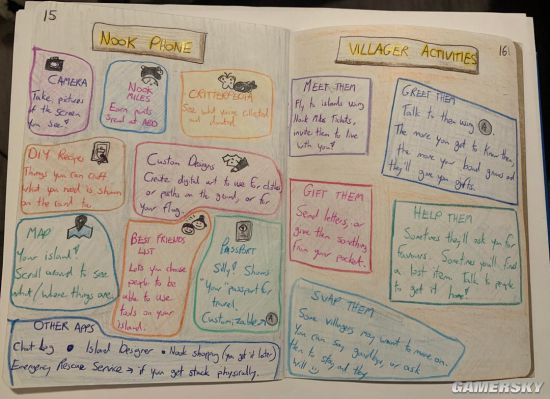 15
NOOK PHONE
CAMERA
Take pictures
of the screen
you see!
NOOK
MILES
Earn points
Spend at ABD
CRITTERPEDIA
See what you've collected
and donated
DIY RECIPES
Things you can craft
what you need is shown
on the card too
CUSTOM DESIGNS
Create digital art to use for clothes,
or paths on the ground, or for
your flag.
MAP
Your island!
Scroll around to see
what/where things are
BEST FRIENDS
LIST
Lets you choose
people to be
able to use
tools on your
island.
PASSPORT
Silly! Shows
"Your" passport for
travel
Customizable → A
OTHER APPS
Chat Log • Island Designer • Nook Shopping (you get it later)
Emergency Rescue Service → if you get stuck physically.
16
VILLAGER ACTIVITIES
MEET THEM
Fly to islands using
Nook Mile Tickets,
invite them to live
with you!
GREET THEM
Talk to them using A.
The more you get to know them,
the more your bond grows and
they'll give you gifts.
GIFT THEM
Send letters, or
give them something
from your pocket.
HELP THEM
Sometimes they'll ask you for
favours. Sometimes you'll find
a lost item. Talk to people
to get it home!
SWAP THEM
Some villagers may want to move on.
You can say goodbye, or ask
them to stay and they
will :)
GAMERSKY